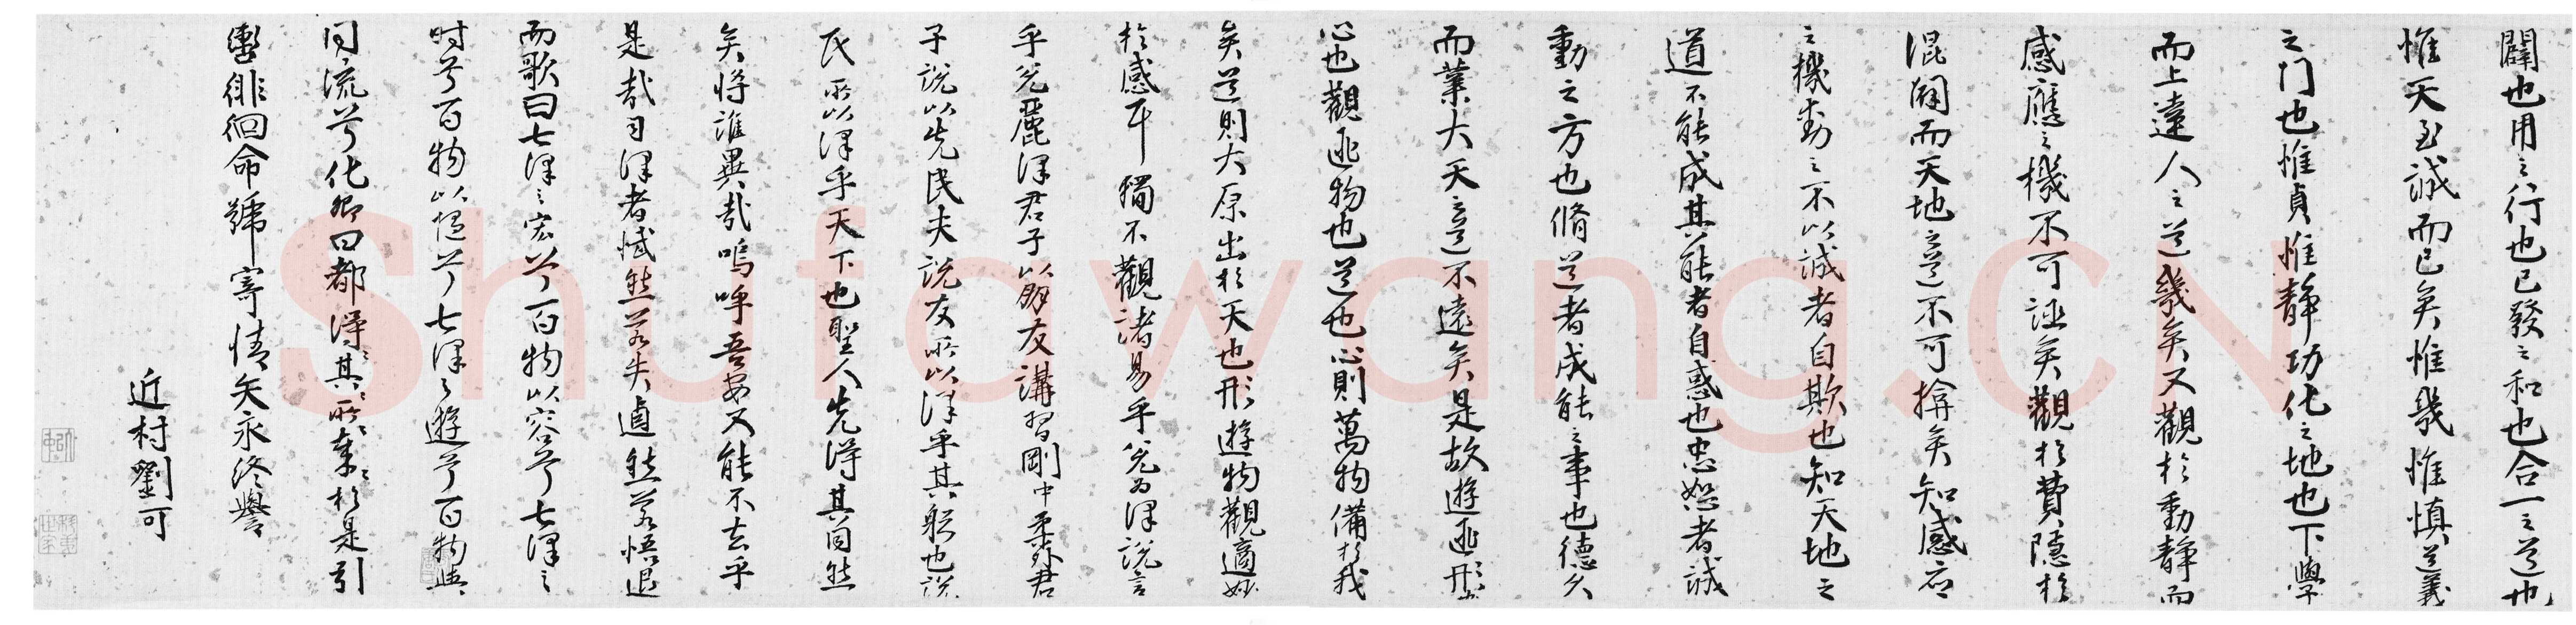 闢也用之行也已發之和也合一之道也
惟天至誠而已矣惟幾惟慎道義
之门也惟貞惟靜功化之地也下學
而上達人之道幾矣又觀於動靜而
感應之機不可誣矣觀於費隱於
混闢而天地之意不可揜矣知感应
之機動之不以誠者自欺也知天地之
道不能成其能者自惑也忠恕者誠
動之方也脩道者成能之事也德久
而業大天意不遠矣是故遊乎形
心也觀乎物也道也心則萬物備於我
矣道則大原出於天也形遊物觀適妙
於感耳獨不觀諸易乎兌為澤說言
乎兌麗澤君子以朋友講習剛中柔外君
子說以先民夫說友所以澤乎其躬也說
民所以澤乎天下也聖人先得其同然
矣將誰異哉嗚呼吾安又能不去乎
是哉司澤者憮然若失逌然若悟退
而歌曰七澤之宏兮百物以容兮七澤之
时兮百物以熙兮七澤之遊兮百物與
同流兮化卿曰都得其所得其所乘於是引
轡徘徊命號寄情矢永終譽
近村劉可
Shufawang.CN